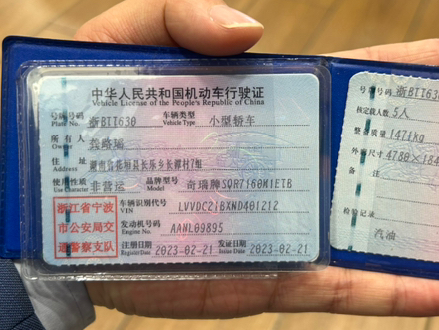 中华人民共和国机动车行驶证
Vehicle License of the People's Republic of China
号牌号码 Plate No. 浙BII630 车辆类型 Vehicle Type 小型轿车
所有人 Owner
住址 Address 湖南省花垣县长乐乡长潭村7组
使用性质 Use Character 非营运 品牌型号 Model 奇瑞牌SQR7160M1ETB
浙江省宁波
市公安局交
通警察支队
车辆识别代号 VIN LVVDC21BXND401212
发动机号码 Engine No. AANL09895
注册日期 Register Date 2023-02-21 发证日期 Issue Date 2023-02-21
号牌号码 浙BII630
核定载人数 5人
整备质量 1471kg
外廓尺寸 4780×184
备注
检验记录
汽油